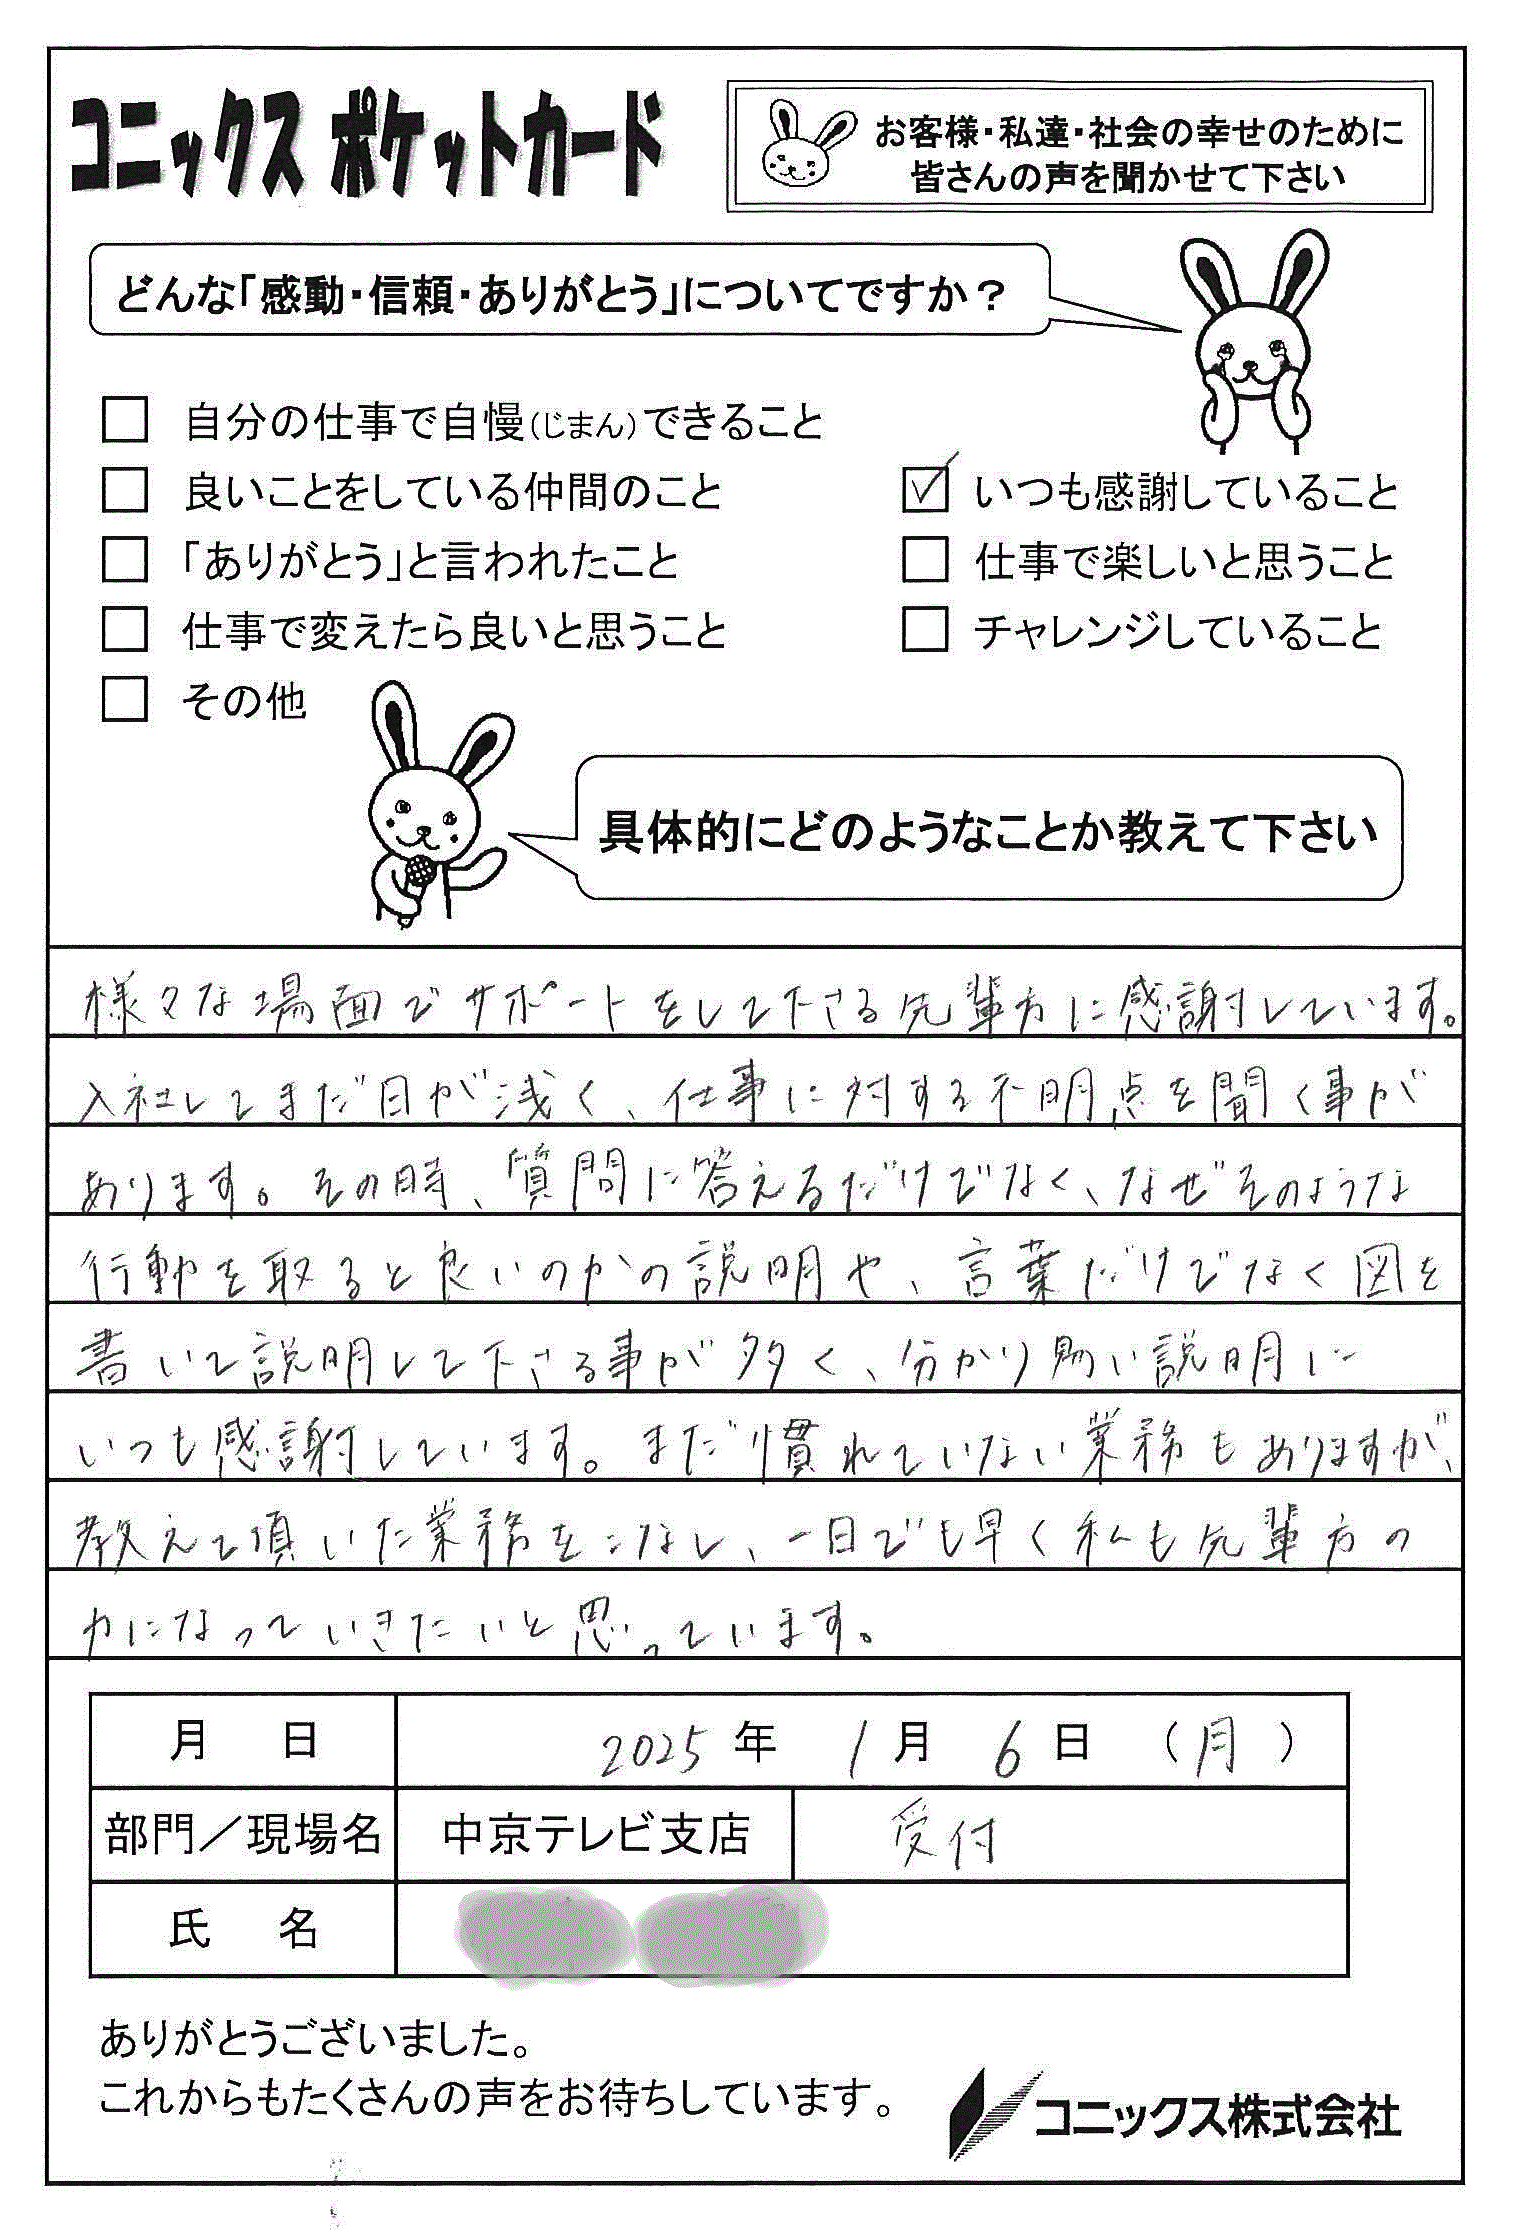 コニックス ポケットカード
お客様・私達・社会の幸せのために
皆さんの声を聞かせて下さい
どんな「感動・信頼・ありがとう」についてですか？
自分の仕事で自慢(じまん)できること
良いことをしている仲間のこと
いつも感謝していること
「ありがとう」と言われたこと
仕事で楽しいと思うこと
仕事で変えたら良いと思うこと
チャレンジしていること
その他
具体的にどのようなことか教えて下さい
様々な場面でサポートをして下さる先輩方に感謝しています。
入社してまだ日が浅く、仕事に対する不明点を聞く事が
あります。その時、質問に答えるだけでなく、なぜそのような
行動を取ると良いのかの説明や、言葉だけでなく図を
書いて説明して下さる事が多く、分かり易い説明に
いつも感謝しています。まだ慣れていない業務もありますが、
教えて頂いた業務をこなし、一日でも早く私も先輩方の
力になっていきたいと思っています。
月 日 2025 年 1 月 6 日 (月)
部門／現場名 中京テレビ支店 受付
氏 名
ありがとうございました。
これからもたくさんの声をお待ちしています。
コニックス株式会社